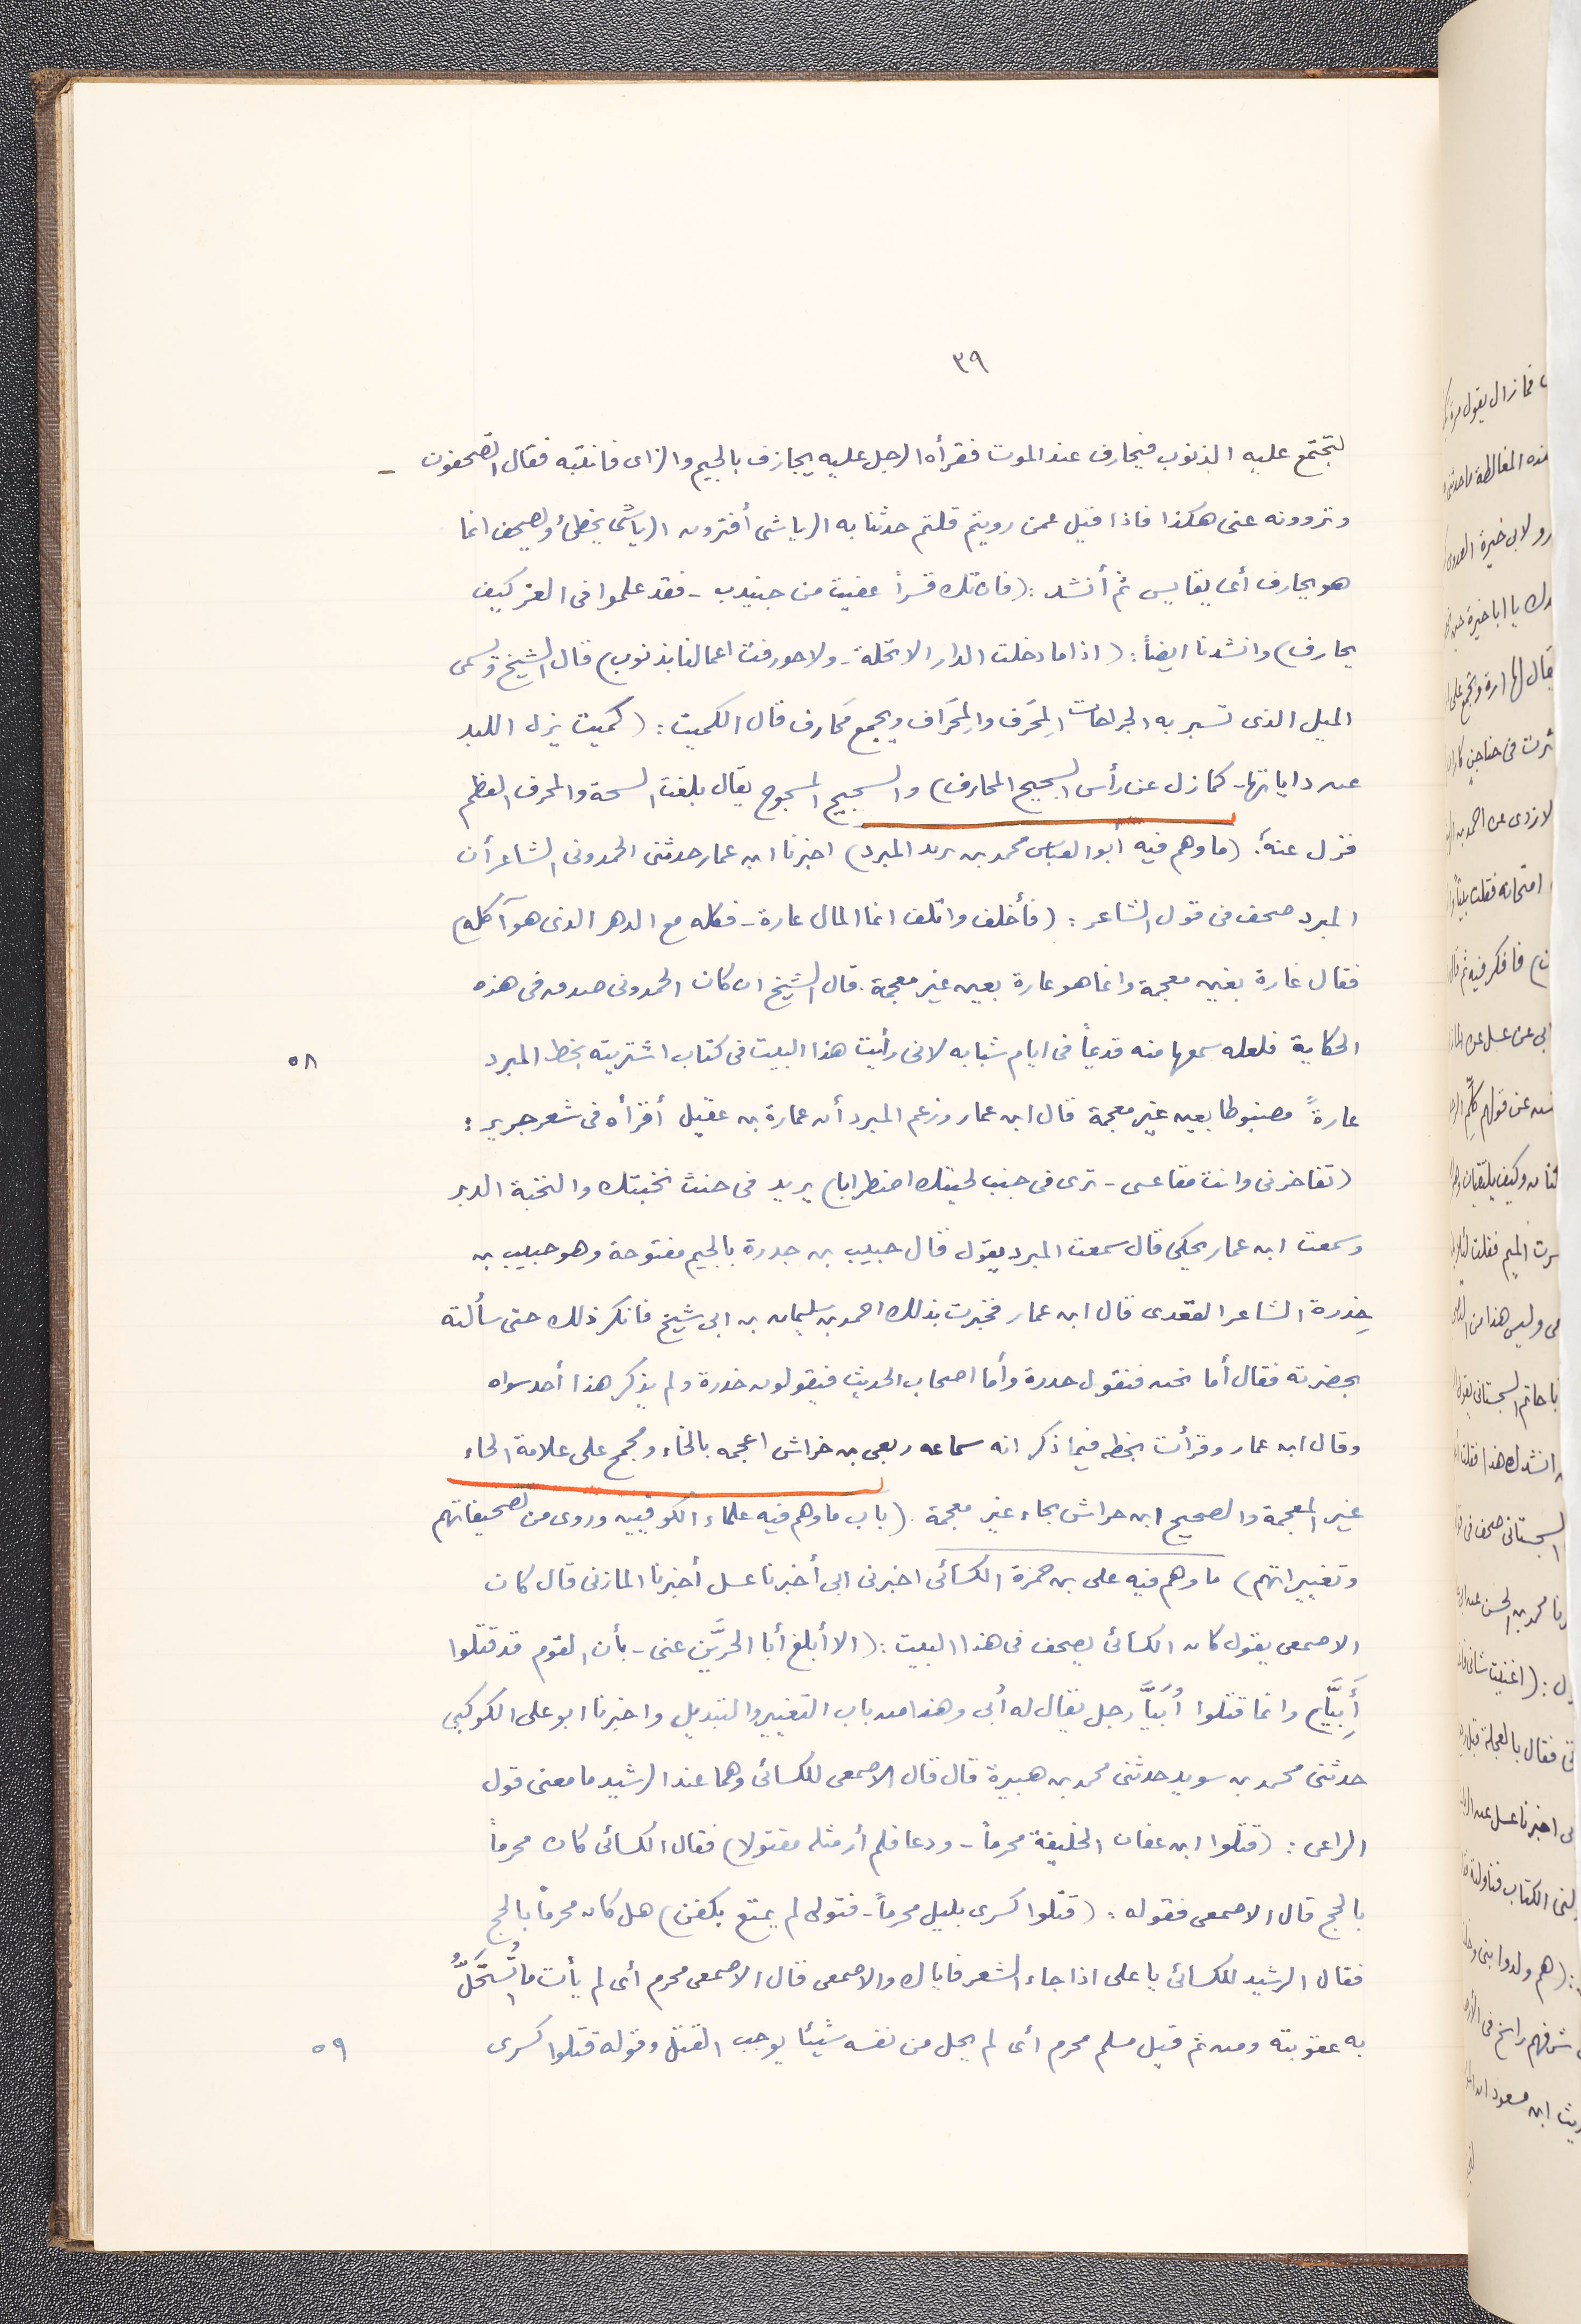 ٣٩
لتجتمع عليه الذنوب فيحارف عند الموت فقرأه الرجل عليه يجازف بالجيم والزاى فانتبه فقال تصحفون -
وتروونه عنى هكذا فاذا قيل عمن رويتم قلتم حدثنا به الرياشى أفترون الرياشى يخطئ ويصحف انما
هو يحارف أى يقايس ثم أنشد : (فان تك قسراً عفيت من جنيدب - فقد علموا فى الغز كيف
يحارف) وانشدنا ايضاً : (اذا ما دخلت الدار الا تحلة - ولا حورفت اعمالنا بذنوب) قال الشيخ وتسمى
الميل الذى تسبر به الجراحات المِحرَف والمِحرَاف ويجمع مَحَارف قال الكميت : (كميت يزل اللبد
عن داياتها - كما زل عن رأس السجيج المحارف) والسجيج المسجوج يقال بلغت السحة والمحرف العظم
فزل عنه. (ما وهم فيه أبو العباس محمد بن يزيد المبرد) اخبرنا ابن عمار حدثنى الحمدونى الشاعر أن
المبرد صحف فى قول الشاعر : (فأخلف واتلف انما المال عارة - فكله مع الدهر الذى هو آكله)
فقال غارة بغين معجمة وانما هو عارة بعين غير معجمة . قال الشيخ ان كان الحمدونى صدق فى هذه
الحكاية فلعله سمعها منه قديماً فى ايام شبابه لانى رأيت هذا البيت فى كتاب اشتريته بخط المبرد
٥٨
عارةً مضبوطا بعين غير معجمة قال ابن عمار وزعم المبرد أن عمارة بن عقيل أقرأه فى شعر جرير :
(تفاخرنى وانت مقاعسى - ترى فى جنب لحيتك اضطرابا) يريد فى خنث نخبتك والنخبة الدبر
وسمعت ابن عمار يحكى قال سمعت المبرد يقول قال حبيب بن جدرة بالجيم مفتوحة وهو حبيب بن
خِدرة الشاعر القعدى قال ابن عمار فخبرت بذلك احمد بن سليمان بن ابى شيخ فانكر ذلك حتى سألته
بحضرته فقال أما نحن فنقول حدرة وأما اصحاب الحديث فيقولون خدرة ولم يذكر هذا أحد سواه
وقال ابن عمار وقرأت بخطه فيما ذكر انه سماعه ربعى بن خراش اعجمه بالخاء ومجمج على علامة الحاء
غير المعجمة والصحيح ابن حراش بحاء غير معجمة . (باب ما وهم فيه علماء الكوفيين وروى من تصحيفاتهم
وتغييراتهم) ما وهم فيه على بن حمزة الكسائى اخبرنى ابى أخبرنا عسل أخبرنا المازنى قال كان
الاصمعى يقول كان الكسائى يصحف فى هذا البيت : (الا أبلغ أبا الحرَّين عنى - بأن القوم قد قتلوا
أَبِيَّا) وانما قتلوا أُبَيَّاً رجل يقال له أبى وهذا من باب التغيير والتبديل واخبرنا ابو على الكوكبى
حدثنى محمد بن سويد حدثنى محمد بن هبيرة قال قال الاصمعى للكسائى وهما عند الرشيد ما معنى قول
الراعى : (قتلوا ابن عفان الخليفة محرماً - ودعا فلم أر مثله مقتولا) فقال الكسائى كان محرماً
بالحج قال الاصمعى فقوله : (قتلوا كسرى بليل محرماً - فتولى لم يمتع بكفن) هل كان محرماً بالحج
فقال الرشيد للكسائى يا على اذا جاء الشعر فاياك والاصمعى قال الاصمعى محرم أى لم يأت ما تُستَحَلُّ
به عقوبته ومن ثم قيل مسلم محرم أى لم يحل من نفسه شيئا يوجب القتل وقوله قتلوا كسرى
٥٩